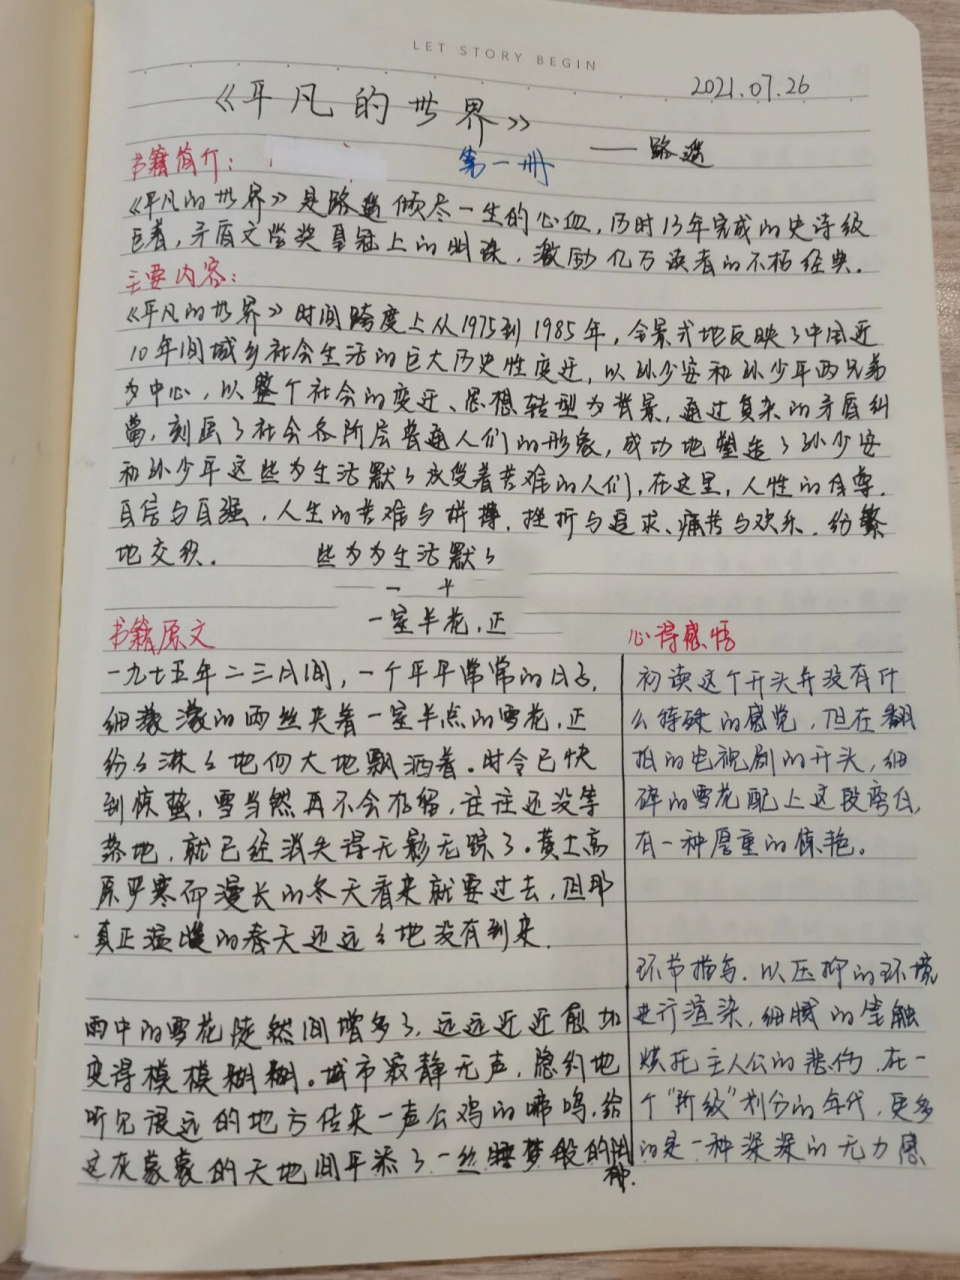 LET STORY BEGIN
2021.07.26
《平凡的世界》
——路遥
书籍简介：
第一册
《平凡的世界》是路遥倾尽一生的心血，历时13年完成的史诗级
巨着，矛盾文学奖皇冠上的明珠，激励亿万读者的不朽经典。
主要内容：
《平凡的世界》时间跨度上从1975到1985年，全景式地反映了中国近
10年间城乡社会生活的巨大历史性变迁，以孙少安和孙少平两兄弟
为中心，以整个社会的变迁、思想转型为背景，通过复杂的矛盾纠
葛，刻画了社会各阶层普通人们的形象，成功地塑造了孙少安
和孙少平这些为生活默々承受着苦难的人们，在这里，人性的自尊、
自信与自强，人生的苦难与拼搏，挫折与追求、痛苦与欢乐，纷繁
地交织。
些为为生活默々
一室半花，正
书籍原文
一九七五年二三月间，一个平平常常的日子，
细濛濛的雨丝夹着一星半点的雪花，正
纷々淋々地向大地飘洒着。时令已快
到惊蛰，雪当然再不会存留，往往还没等
落地，就已经消失得无影无踪了。黄土高
原严寒而漫长的冬天看来就要过去，但那
真正温暖的春天还远々地没有到来。
雨中的雪花陡然间增多了，远远近近愈加
变得模模糊糊。城市寂静无声，隐约地
听见很远的地方传来一声公鸡的啼鸣，给
这灰蒙蒙的天地间平添了一丝睡梦般的阴
郁。
心得感悟
初读这个开头并没有什
么特殊的感觉，但在翻
拍的电视剧的开头，细
碎的雪花配上这段旁白，
有一种厚重的惊艳。
环节描写，以压抑的环境
进行渲染，细腻的笔触
烘托主人公的悲伤，在一
个“阶级”划分的年代，更多
的是一种深深的无力感